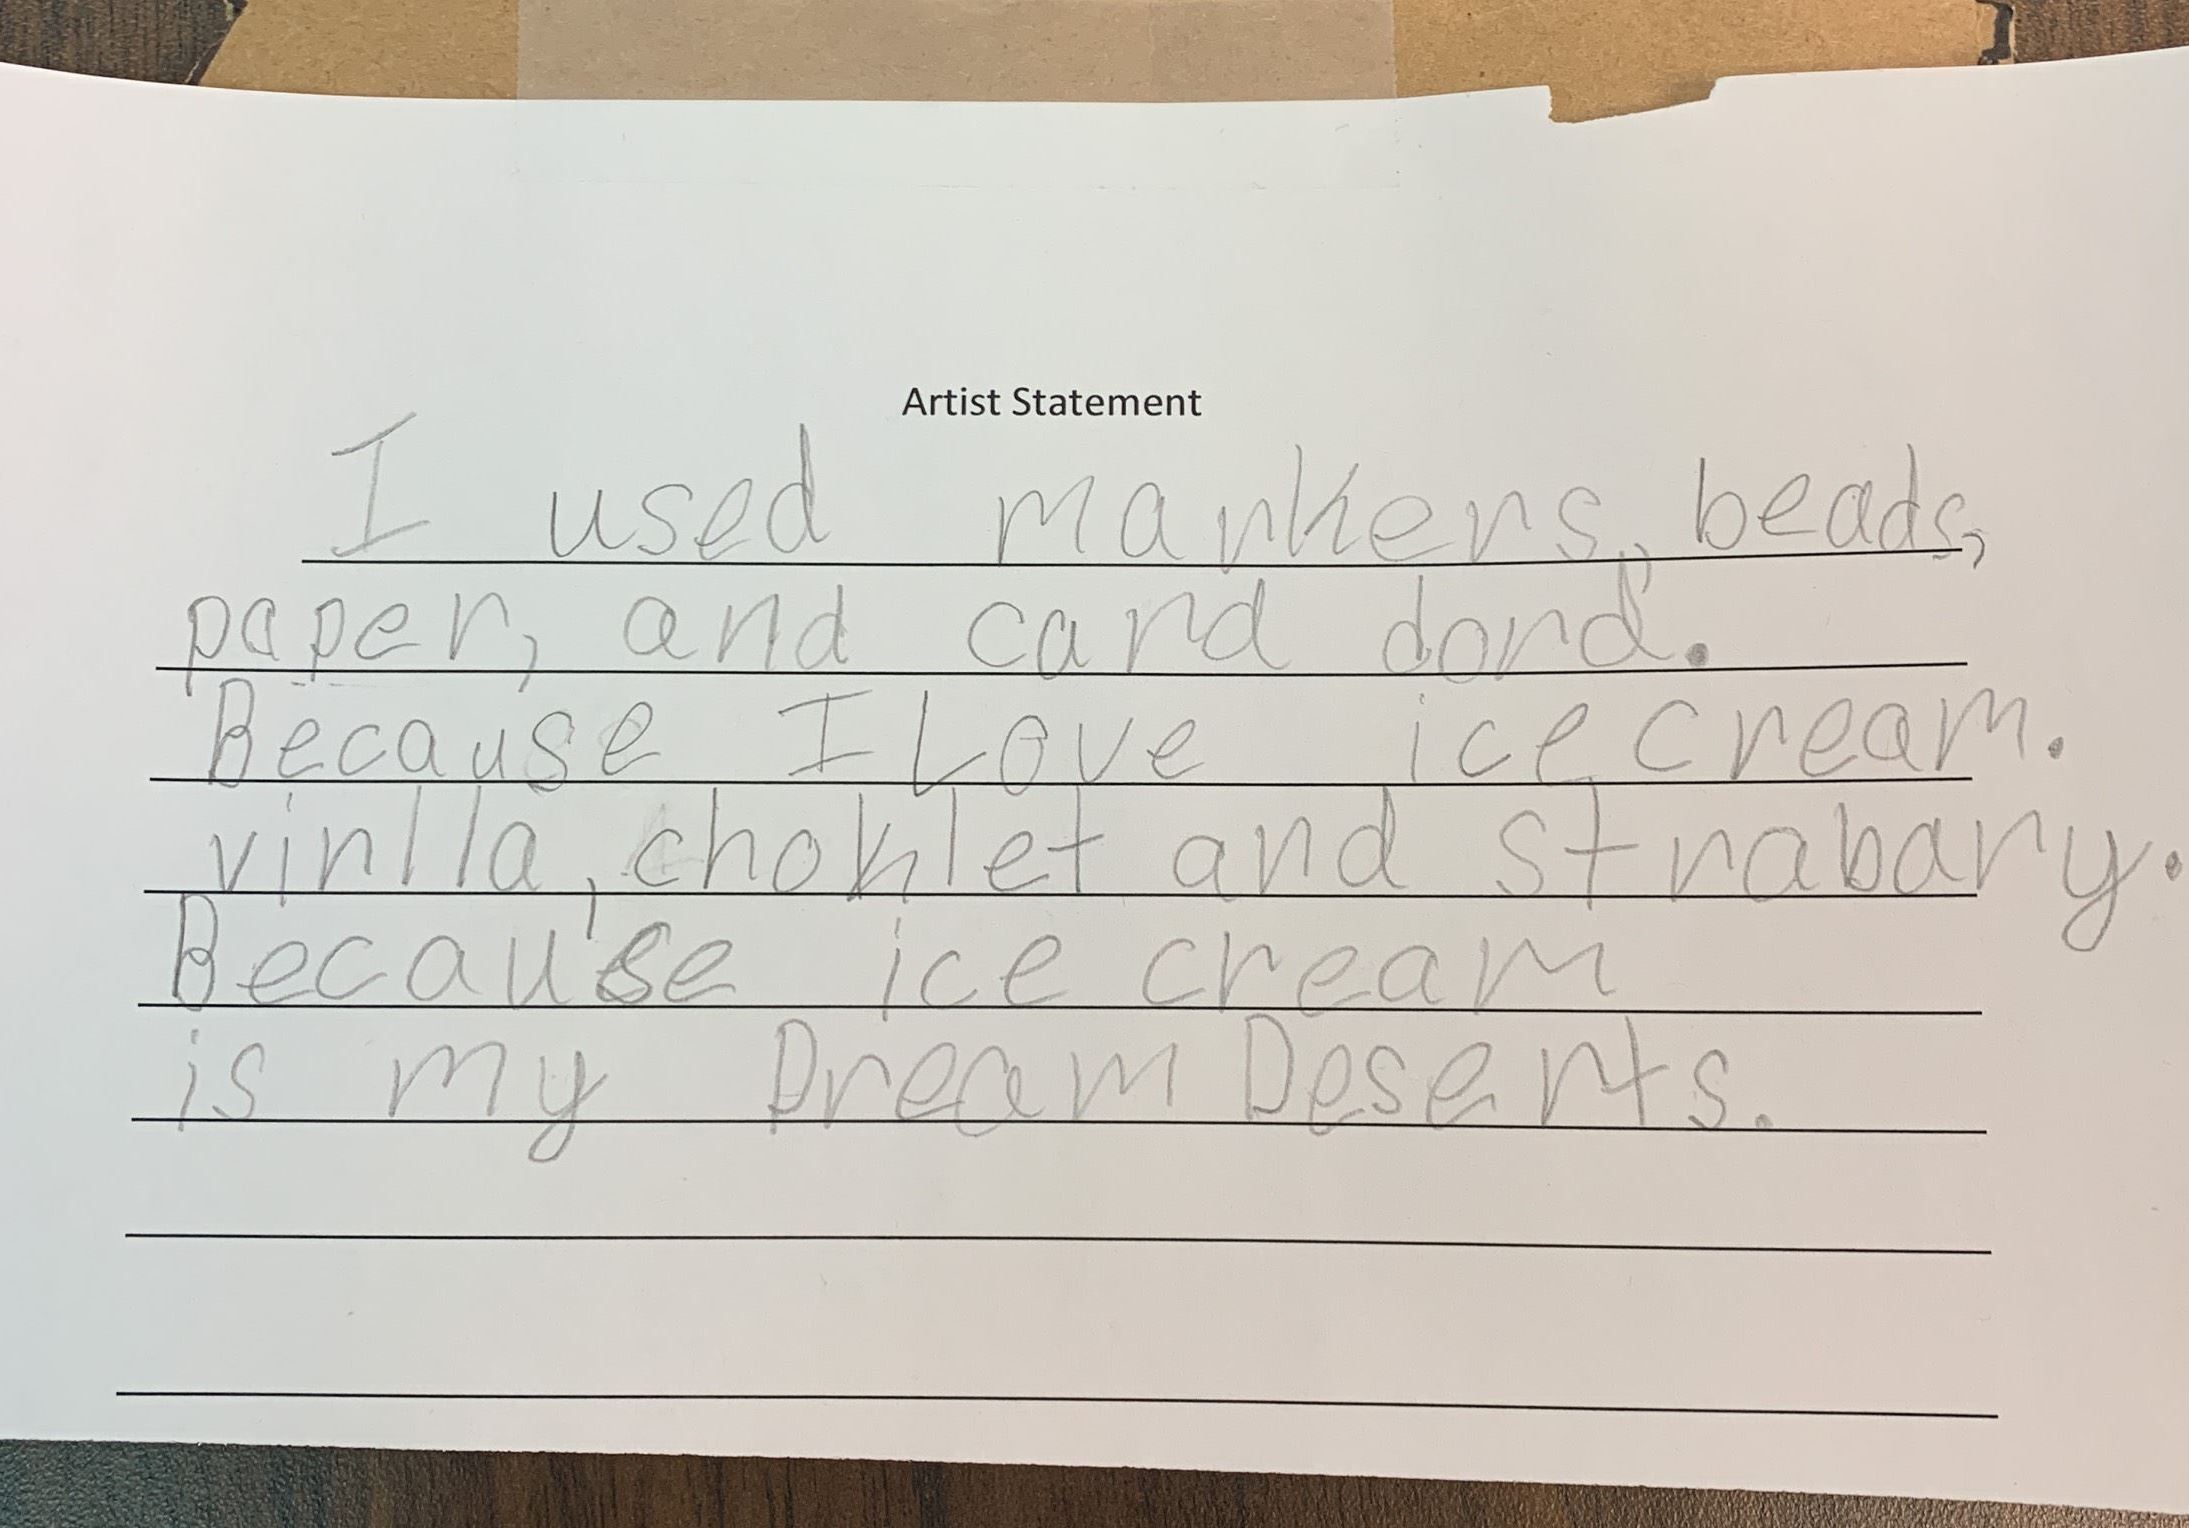 Artist Statement
I used markers, beads,
paper, and card dord.
Because I Love ice cream.
vinlla, choklet and strabary.
Because ice cream
is my Dream Deserts.